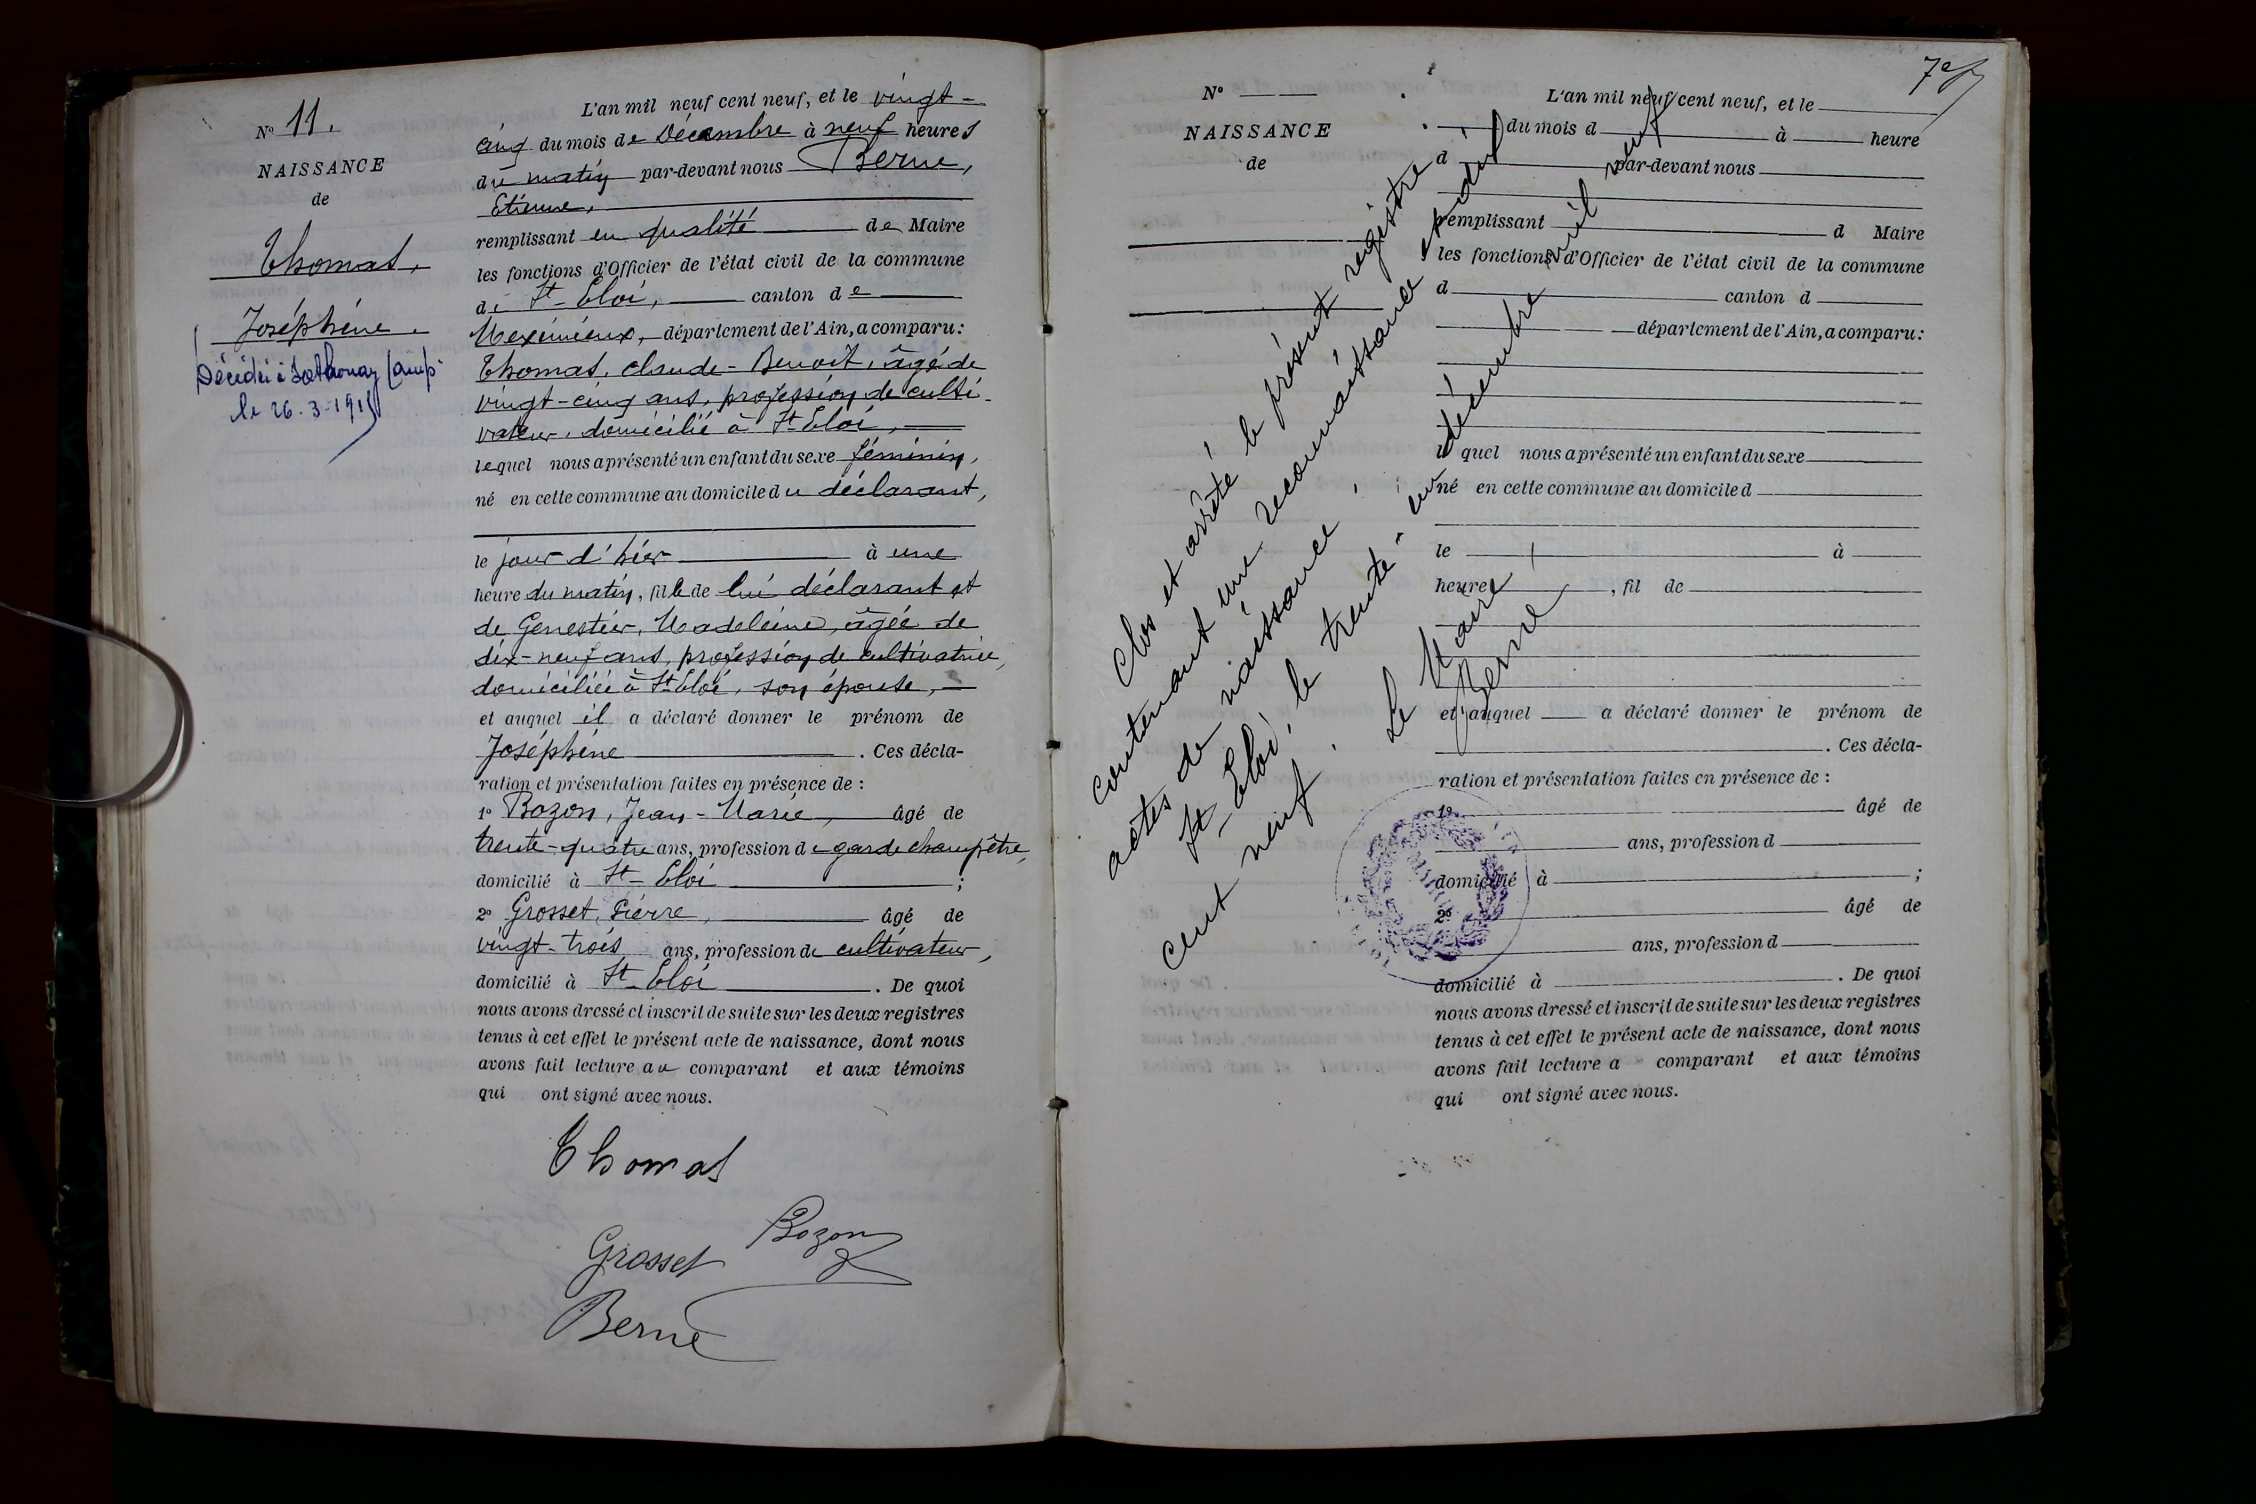 N° 11.
NAISSANCE
de
Thomas,
Joséphine.
Décédée à Sathonay Camp
le 26-3-191
L'an mil neuf cent neuf, et le vingt-
cinq du mois de Décembre à neuf heures
du matin par-devant nous Berne,
Etienne,
remplissant en qualité de Maire
les fonctions d'Officier de l'état civil de la commune
de St-Eloi, canton de
Meximieux, département de l'Ain, a comparu:
Thomas, Claude-Benoit, âgé de
vingt-cinq ans, profession de culti-
vateur, domicilié à St-Eloi,
lequel nous a présenté un enfant du sexe féminin,
né en cette commune au domicile du déclarant,
le jour d'hier à une
heure du matin, fille de lui déclarant et
de Genestier, Madeleine, âgée de
dix-neuf ans, profession de cultivatrice,
domiciliée à St-Eloi, son épouse,
et auquel il a déclaré donner le prénom de
Joséphine. Ces décla-
ration et présentation faites en présence de :
1° Bozon, Jean-Marie, âgé de
trente-quatre ans, profession de garde champêtre,
domicilié à St-Eloi ;
2° Grosset, Pierre, âgé de
vingt-trois ans, profession de cultivateur,
domicilié à St-Eloi. De quoi
nous avons dressé et inscrit de suite sur les deux registres
tenus à cet effet le présent acte de naissance, dont nous
avons fait lecture au comparant et aux témoins
qui ont signé avec nous.
Thomas
Bozon
Grosset
Berne
7e
N°
NAISSANCE
de
L'an mil neuf cent neuf, et le
du mois d à heure
d par-devant nous
remplissant d Maire
les fonctions d'Officier de l'état civil de la commune
d canton d
département de l'Ain, a comparu:
l quel nous a présenté un enfant du sexe
né en cette commune au domicile d
le à
heure, fil de
et auquel a déclaré donner le prénom de
. Ces décla-
ration et présentation faites en présence de :
1° âgé de
ans, profession d
domicilié à ;
2° âgé de
ans, profession d
domicilié à . De quoi
nous avons dressé et inscrit de suite sur les deux registres
tenus à cet effet le présent acte de naissance, dont nous
avons fait lecture a comparant et aux témoins
qui ont signé avec nous.
Clos et arrêté le présent registre
contenant une reconnaissance et dix
actes de naissance,
St-Eloi, le trente-un décembre mil neuf
cent neuf.
Le Maire
Berne